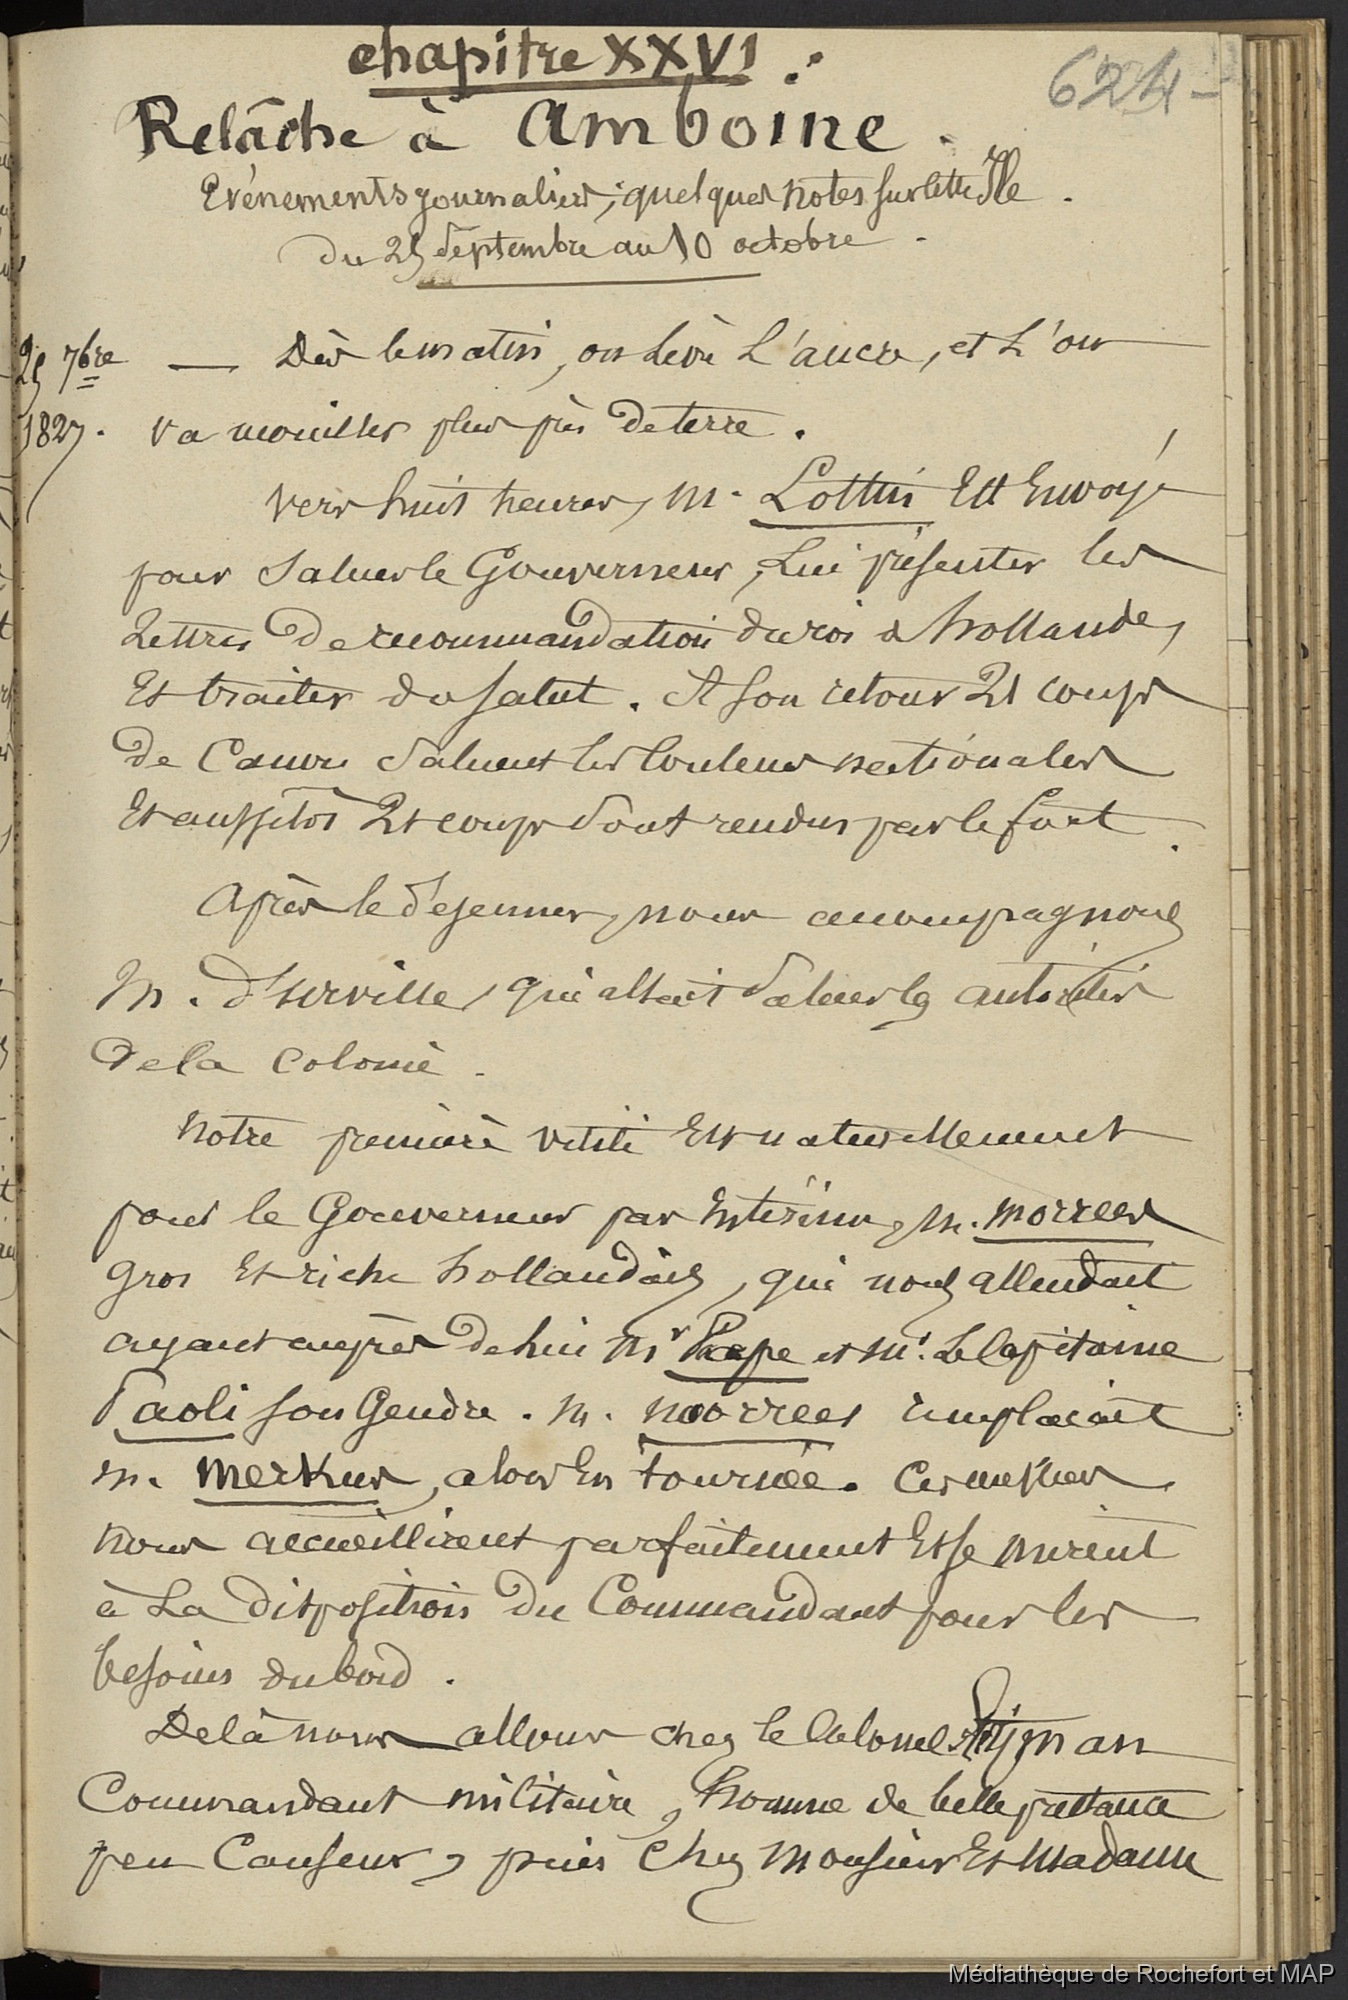 chapitre XXVI.
624-
Relâche à Amboine.
Evénements journaliers; quelques notes sur cette Ile.
Du 25 Septembre au 10 octobre.
25 7bre — Dès le matin, on lève l'ancre, et l'on
1827. va mouiller plus près de terre.
Vers huit heures, M. Lottin Est Envoyé
pour saluer le Gouverneur, Lui présenter les
Lettres de recommandation du roi de hollande,
Et traiter du salut. A son retour 21 coups
de Canon saluent les Couleurs nationales
Et aussitôt 21 coups sont rendus par le fort.
Après le déjeuner, nous accompagnons
M. d'urville, qui allait saluer les autorités
de la colonie.
Notre première visite Est naturellement
pour le Gouverneur par Intérim, M. Moorees
gros Et riche hollandais, qui nous attendait
ayant auprès de lui Mr Pape et Mr. Le Capitaine
Paoli son Gendre. M. Moorees remplaçait
M. Merkus, alors En tournée. Ces messieurs
nous accueillirent parfaitement Et se mirent
à La disposition du Commandant pour les
besoins du bord.
De là nous allons chez le Colonel
Commandant militaire, homme de belle prestance
peu Causeur, puis chez Monsieur Et Madame
Médiathèque de Rochefort et MAP